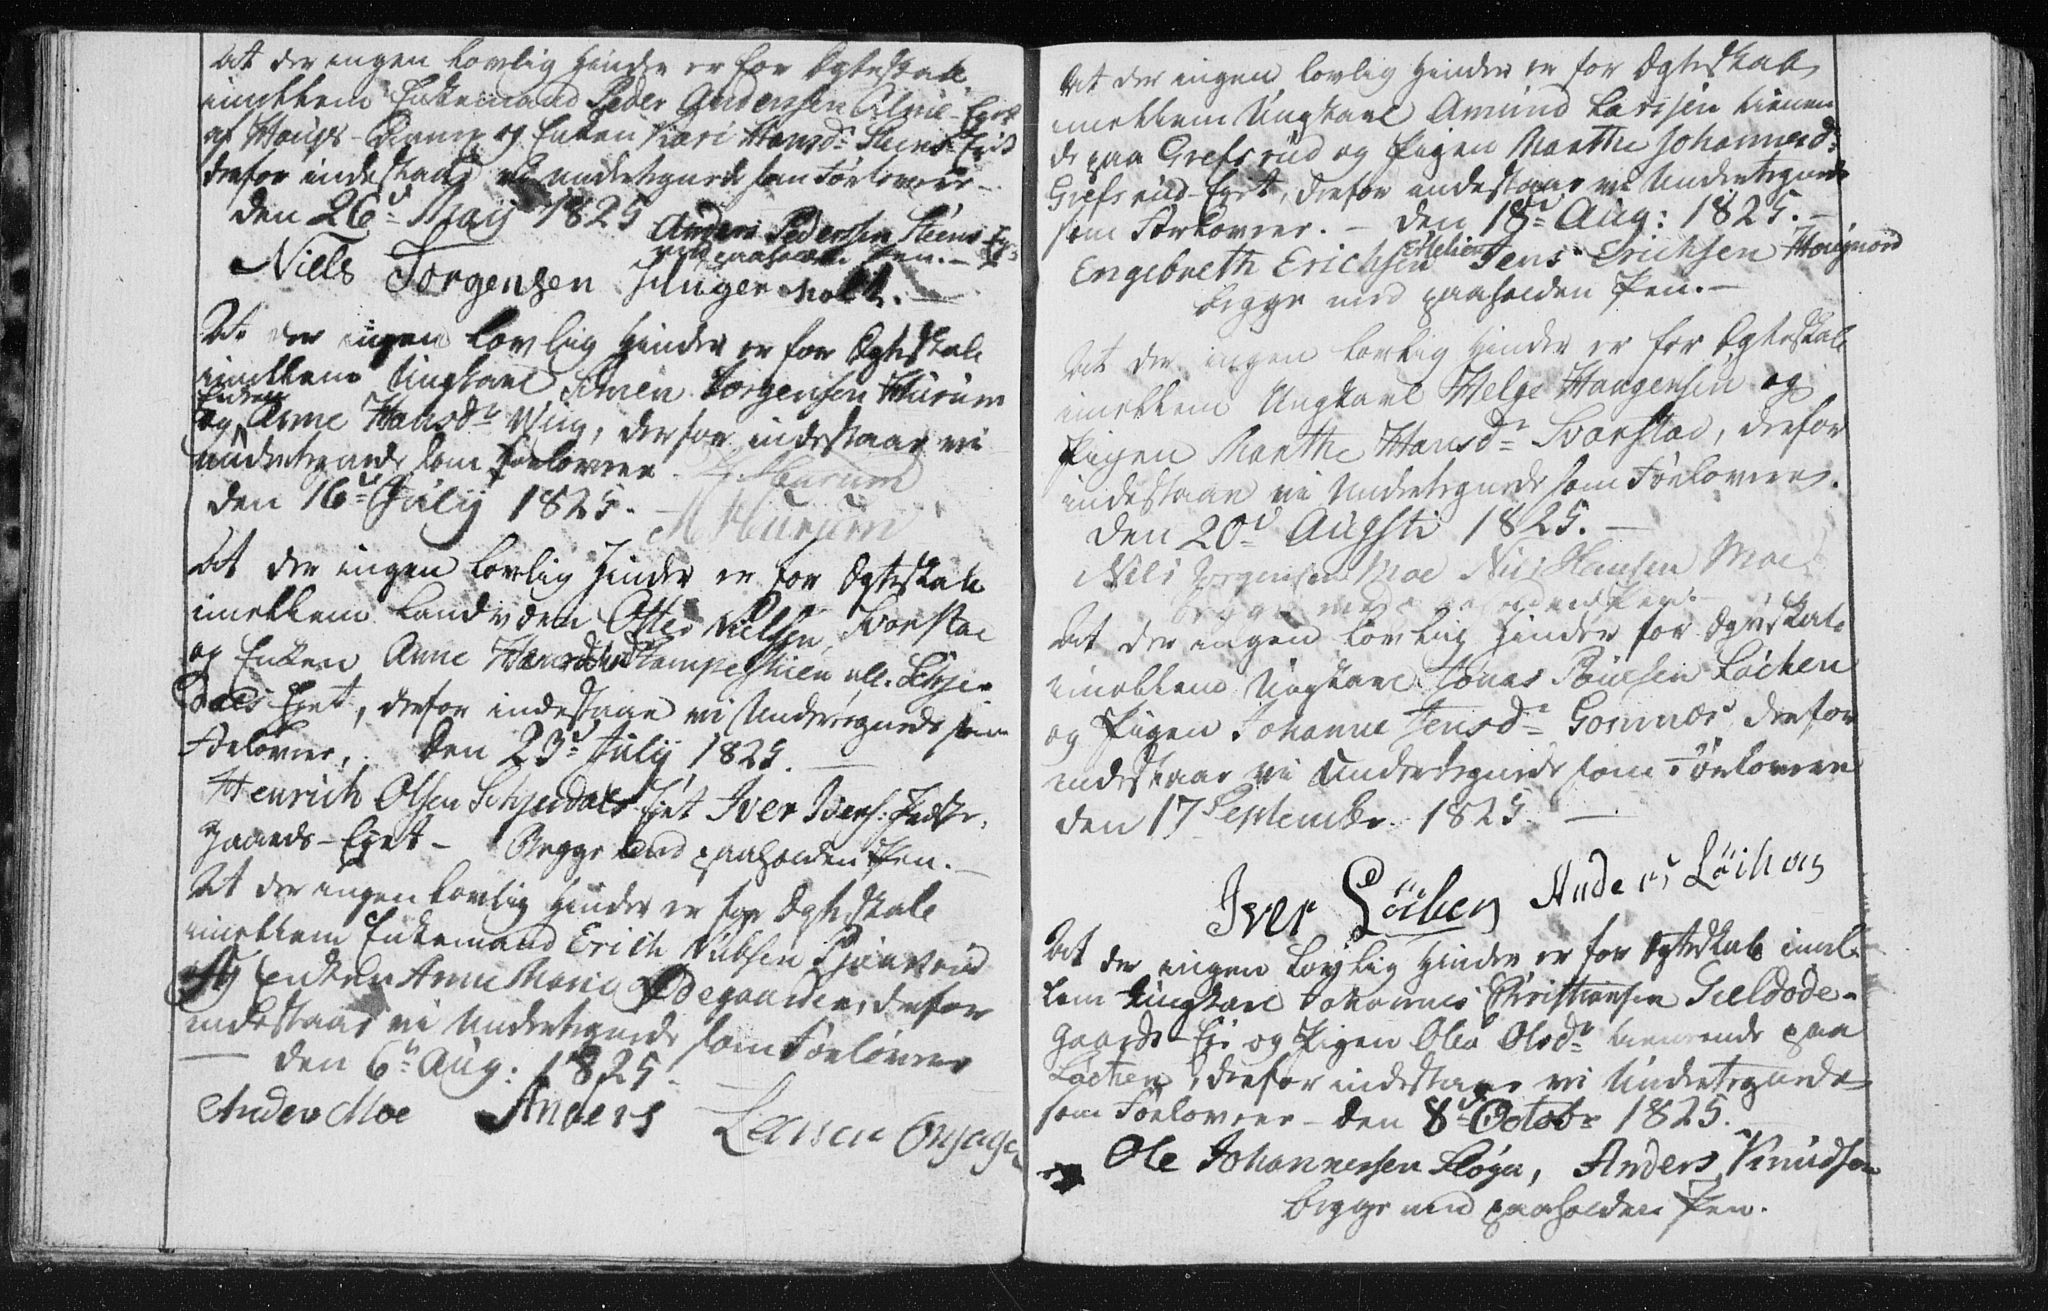 At der ingen lovlig Hinder er for Egteskab
imellem Enkemand Peder Anderssen Eget
af Houges og Enken Kari Hansdr Steens Eget
derfor indestaar vi undertegnede som Forlovere
den 26d May 1825 Anders Pedersen Steens Eg:
med paaholden Pen. –
Niels Torgensen
At der ingen lovlig Hinder er for Egteskab
imellem Ungkarl Simen Torgensen Hurum
Enken
og Anne Hansdr Wiig, derfor indestaar vi
undertegnede som Forlovere – Hurum
den 16d July 1825. – Hurum
At der ingen lovlig Hinder er for Egteskab
imellem Landvden Otter Nielsen Svarstad
og Enken Anne Stampeskien
dals Eget, derfor indestaar vi Undertegnede som
Forlovere. den 23d July 1825. –
Henrich Olsen Schjerdals Eget Iver Ivers:
gaards-Eget – Begge med paaholden Pen. –
At der ingen lovlig Hinder er for Egteskab
imellem Enkemand Erich Nielsen
og Enken Anne Marie Ødegaarden, derfor
indestaar vi Undertegnede som Forlovere
– den 6te Aug: 1825 –
Anders Moe Anders Larsen
At der ingen lovlig Hinder er for Egteskab
imellem Ungkarl Amund Larssen tienen
de paa Grefsrud og Pigen Marthe Johannesdr
Grefsrud-Eget, derfor indestaar vi Undertegnede
som Forlovere. – den 18d Aug: 1825. –
Engebreth Erichsen Jens Erichsen Hougnord
begge med paaholden Pen. –
At der ingen lovlig Hinder er for Egteskab
imellem Ungkarl Helge Haagensen og
Pigen Marthe Hansdr Svarstad, derfor
indestaar vi Undertegnede som Forlovere.
den 20d Augsti 1825. –
Niels Jorgensen Moe Niels Hansen Moe
begge med paaholden Pen.
At der ingen lovlig Hinder for Egteskab
imellem Ungkarl Jonas Poulsen Løchen
og Pigen Johanne Jensdr Gommæs derfor
indestaar vi Undertegnede som Forlovere
den 17 September 1825. –
Iver Löchen Anders Löchen
At der ingen lovlig Hinder er for Egteskab imel-
lem Ungkarl Johannes Christiansen Gieldøde-
gaards-Ei: og Pigen Olea Olsdr tienende paa
Løchen, derfor indestaar vi Undertegnede
som Forlovere – den 8d Octobr 1825.
Ole Johannessen Fløga, Anders Knudsen
begge med paaholden Pen.